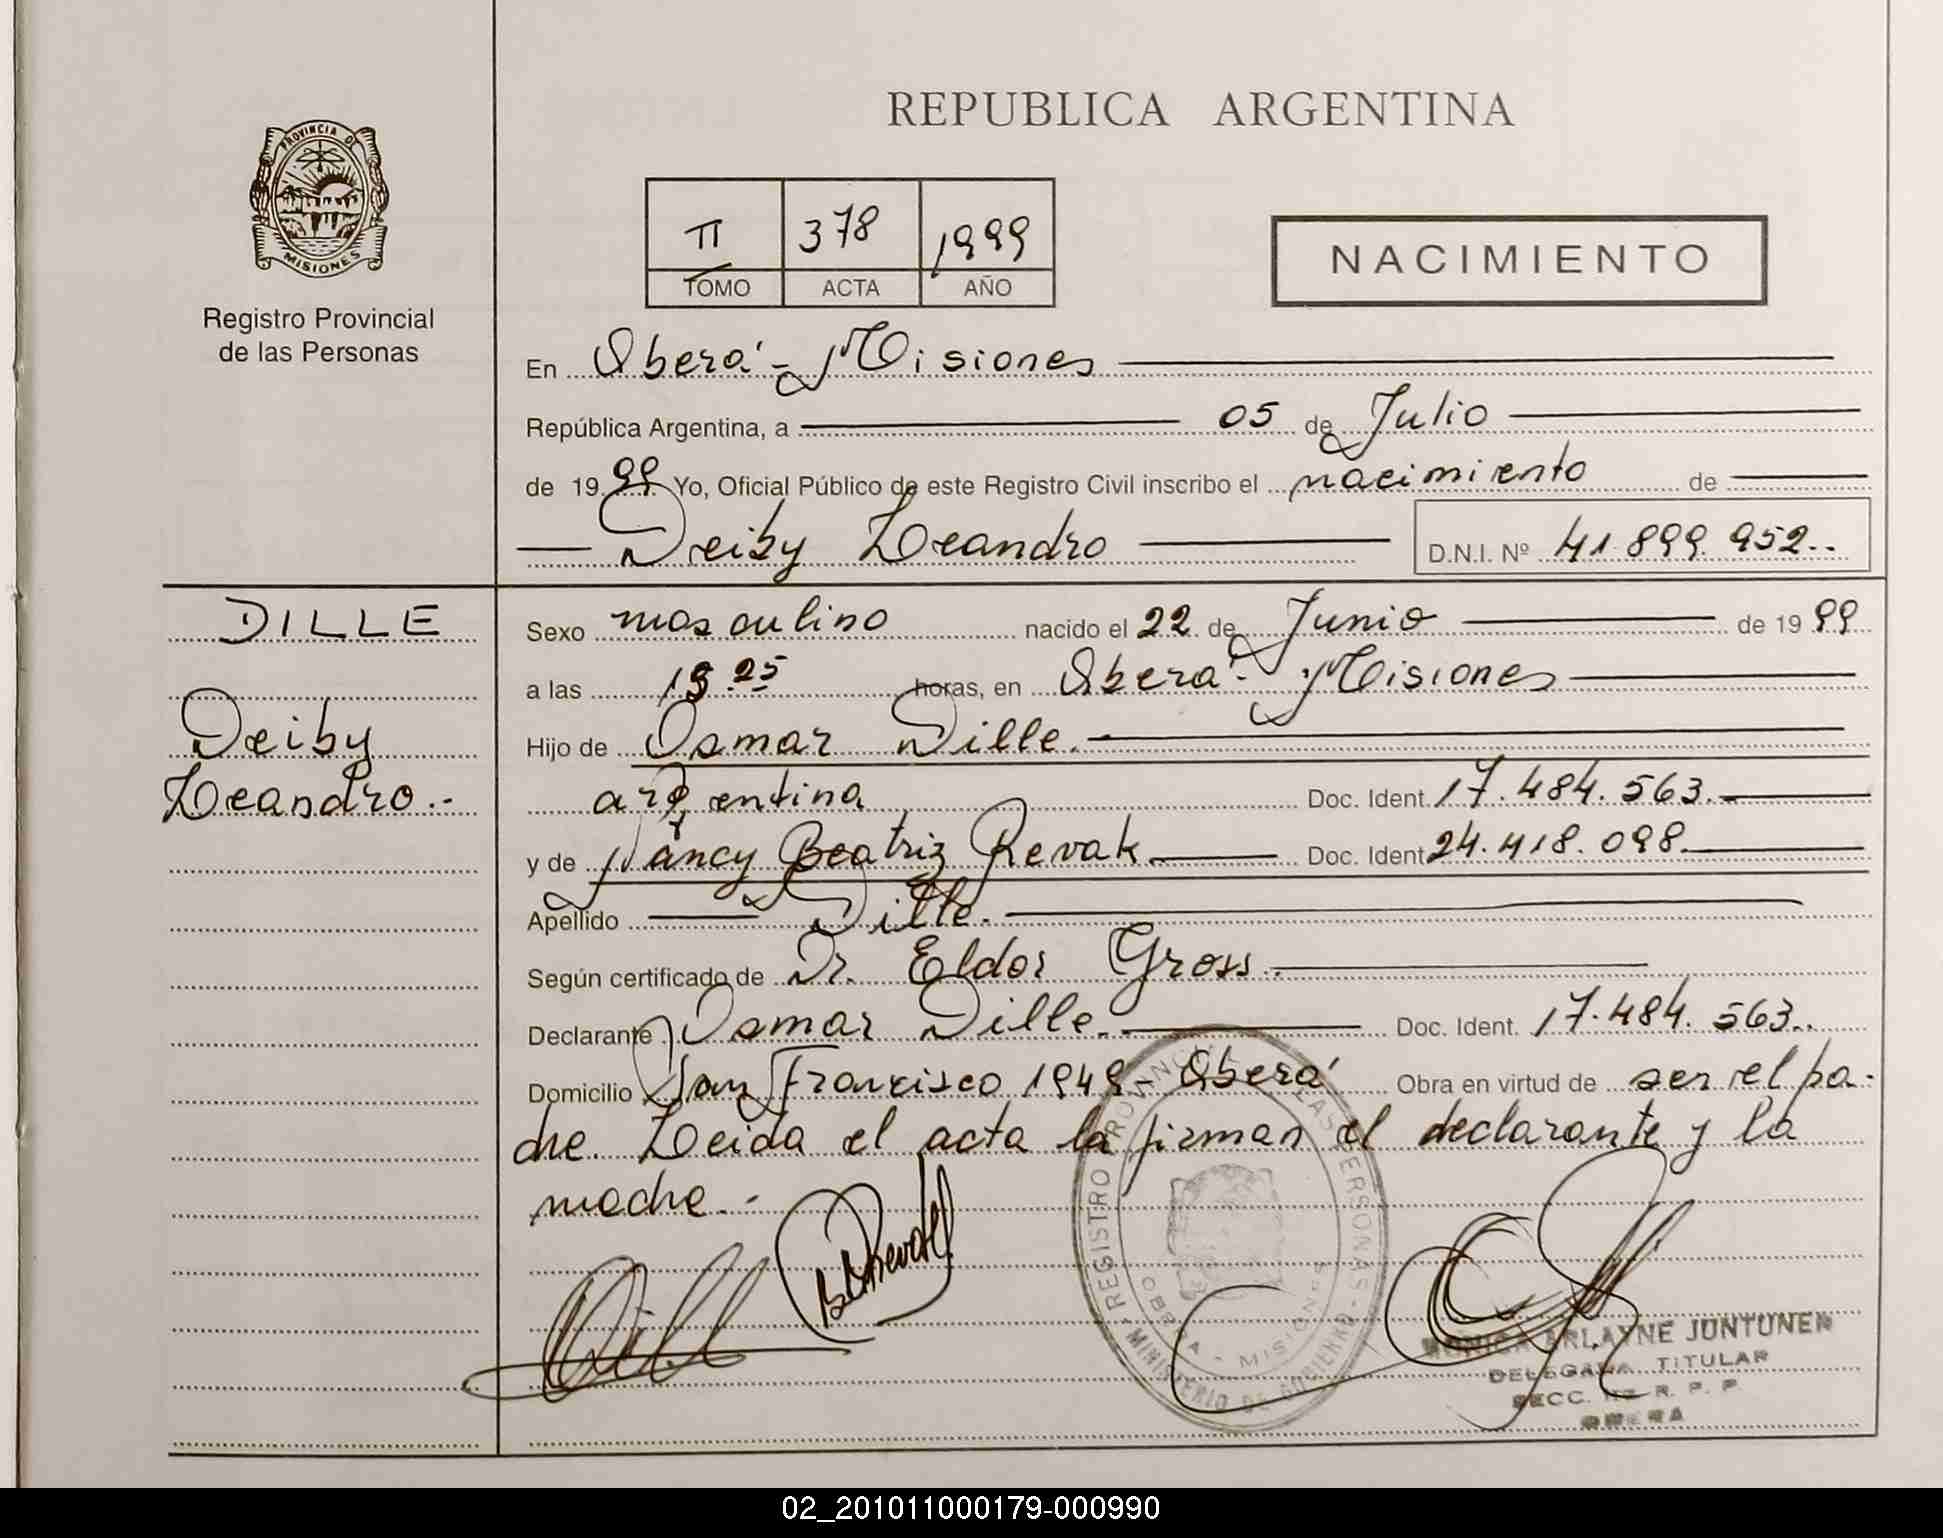 REPUBLICA ARGENTINA
PROVINCIA DE
MISIONES
Registro Provincial
de las Personas
II 378 1999
TOMO ACTA AÑO
NACIMIENTO
En Oberá - Misiones
República Argentina, a 05 de Julio
de 1999 Yo, Oficial Público de este Registro Civil inscribo el nacimiento de
Deiby Leandro D.N.I. Nº 41.899.952..
DILLE
Deiby
Leandro.-
Sexo masculino nacido el 22 de Junio de 1999
a las horas, en Oberá - Misiones
Hijo de Osmar Dille.
argentina Doc. Ident. 17.484.563.
y de Nancy Beatriz Revak Doc. Ident. 24.418.098.
Apellido Dille.
Según certificado de Dr. Eldor Gross.
Declarante Osmar Dille. Doc. Ident. 17.484.563..
Domicilio San Francisco 1949 - Oberá Obra en virtud de ser el pa-
dre. Leida el acta la firman el declarante y la
madre.-
REGISTRO PROVINCIAL DE LAS PERSONAS - MINISTERIO DE GOBIERNO -
OBERA - MISIONES
MONICA ARLAYNE JUNTUNEN
DELEGADA TITULAR
SECC. R. P. P.
OBERA
02_201011000179-000990